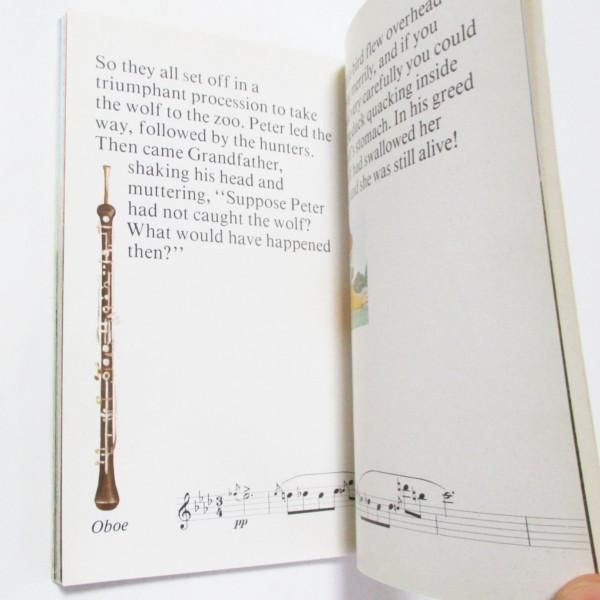 So they all set off in a
triumphant procession to take
the wolf to the zoo. Peter led the
way, followed by the hunters.
Then came Grandfather,
shaking his head and
muttering, ‘‘Suppose Peter
had not caught the wolf?
What would have happened
then?’’
Oboe
3
4
pp
bird flew overhead
merrily, and if you
very carefully you could
duck quacking inside
stomach. In his greed
had swallowed her
and she was still alive!